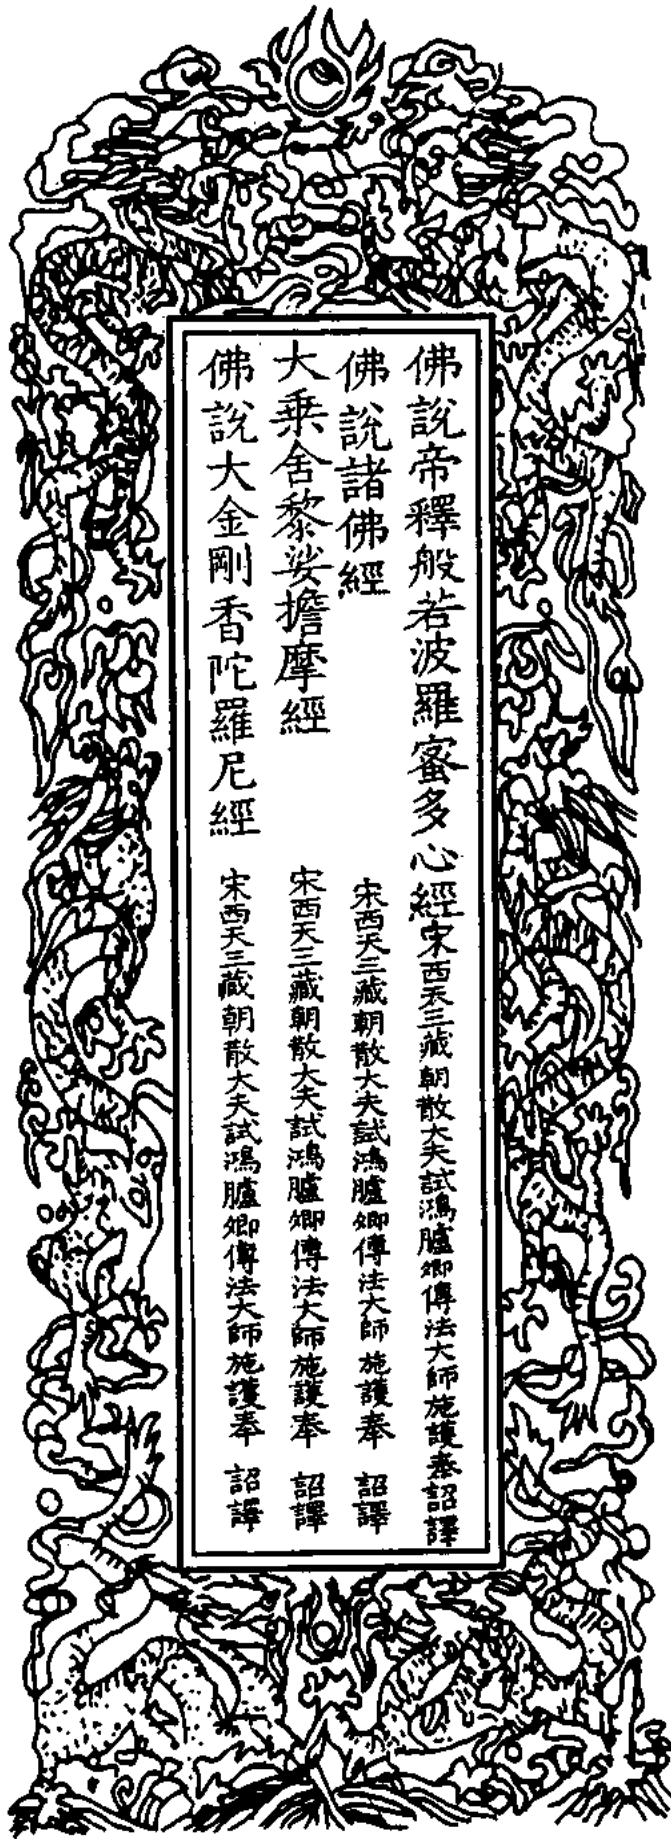 佛說帝釋般若波羅蜜多心經宋西天三藏朝散大夫試鴻臚卿傳法大師施護奉詔譯
佛說諸佛經 宋西天三藏朝散大夫試鴻臚卿傳法大師施護奉 詔譯
大乗舍黎娑擔摩經 宋西天三藏朝散大夫試鴻臚卿傳法大師施護奉 詔譯
佛說大金剛香陀羅尼經 宋西天三藏朝散大夫試鴻臚卿傳法大師施護奉 詔譯